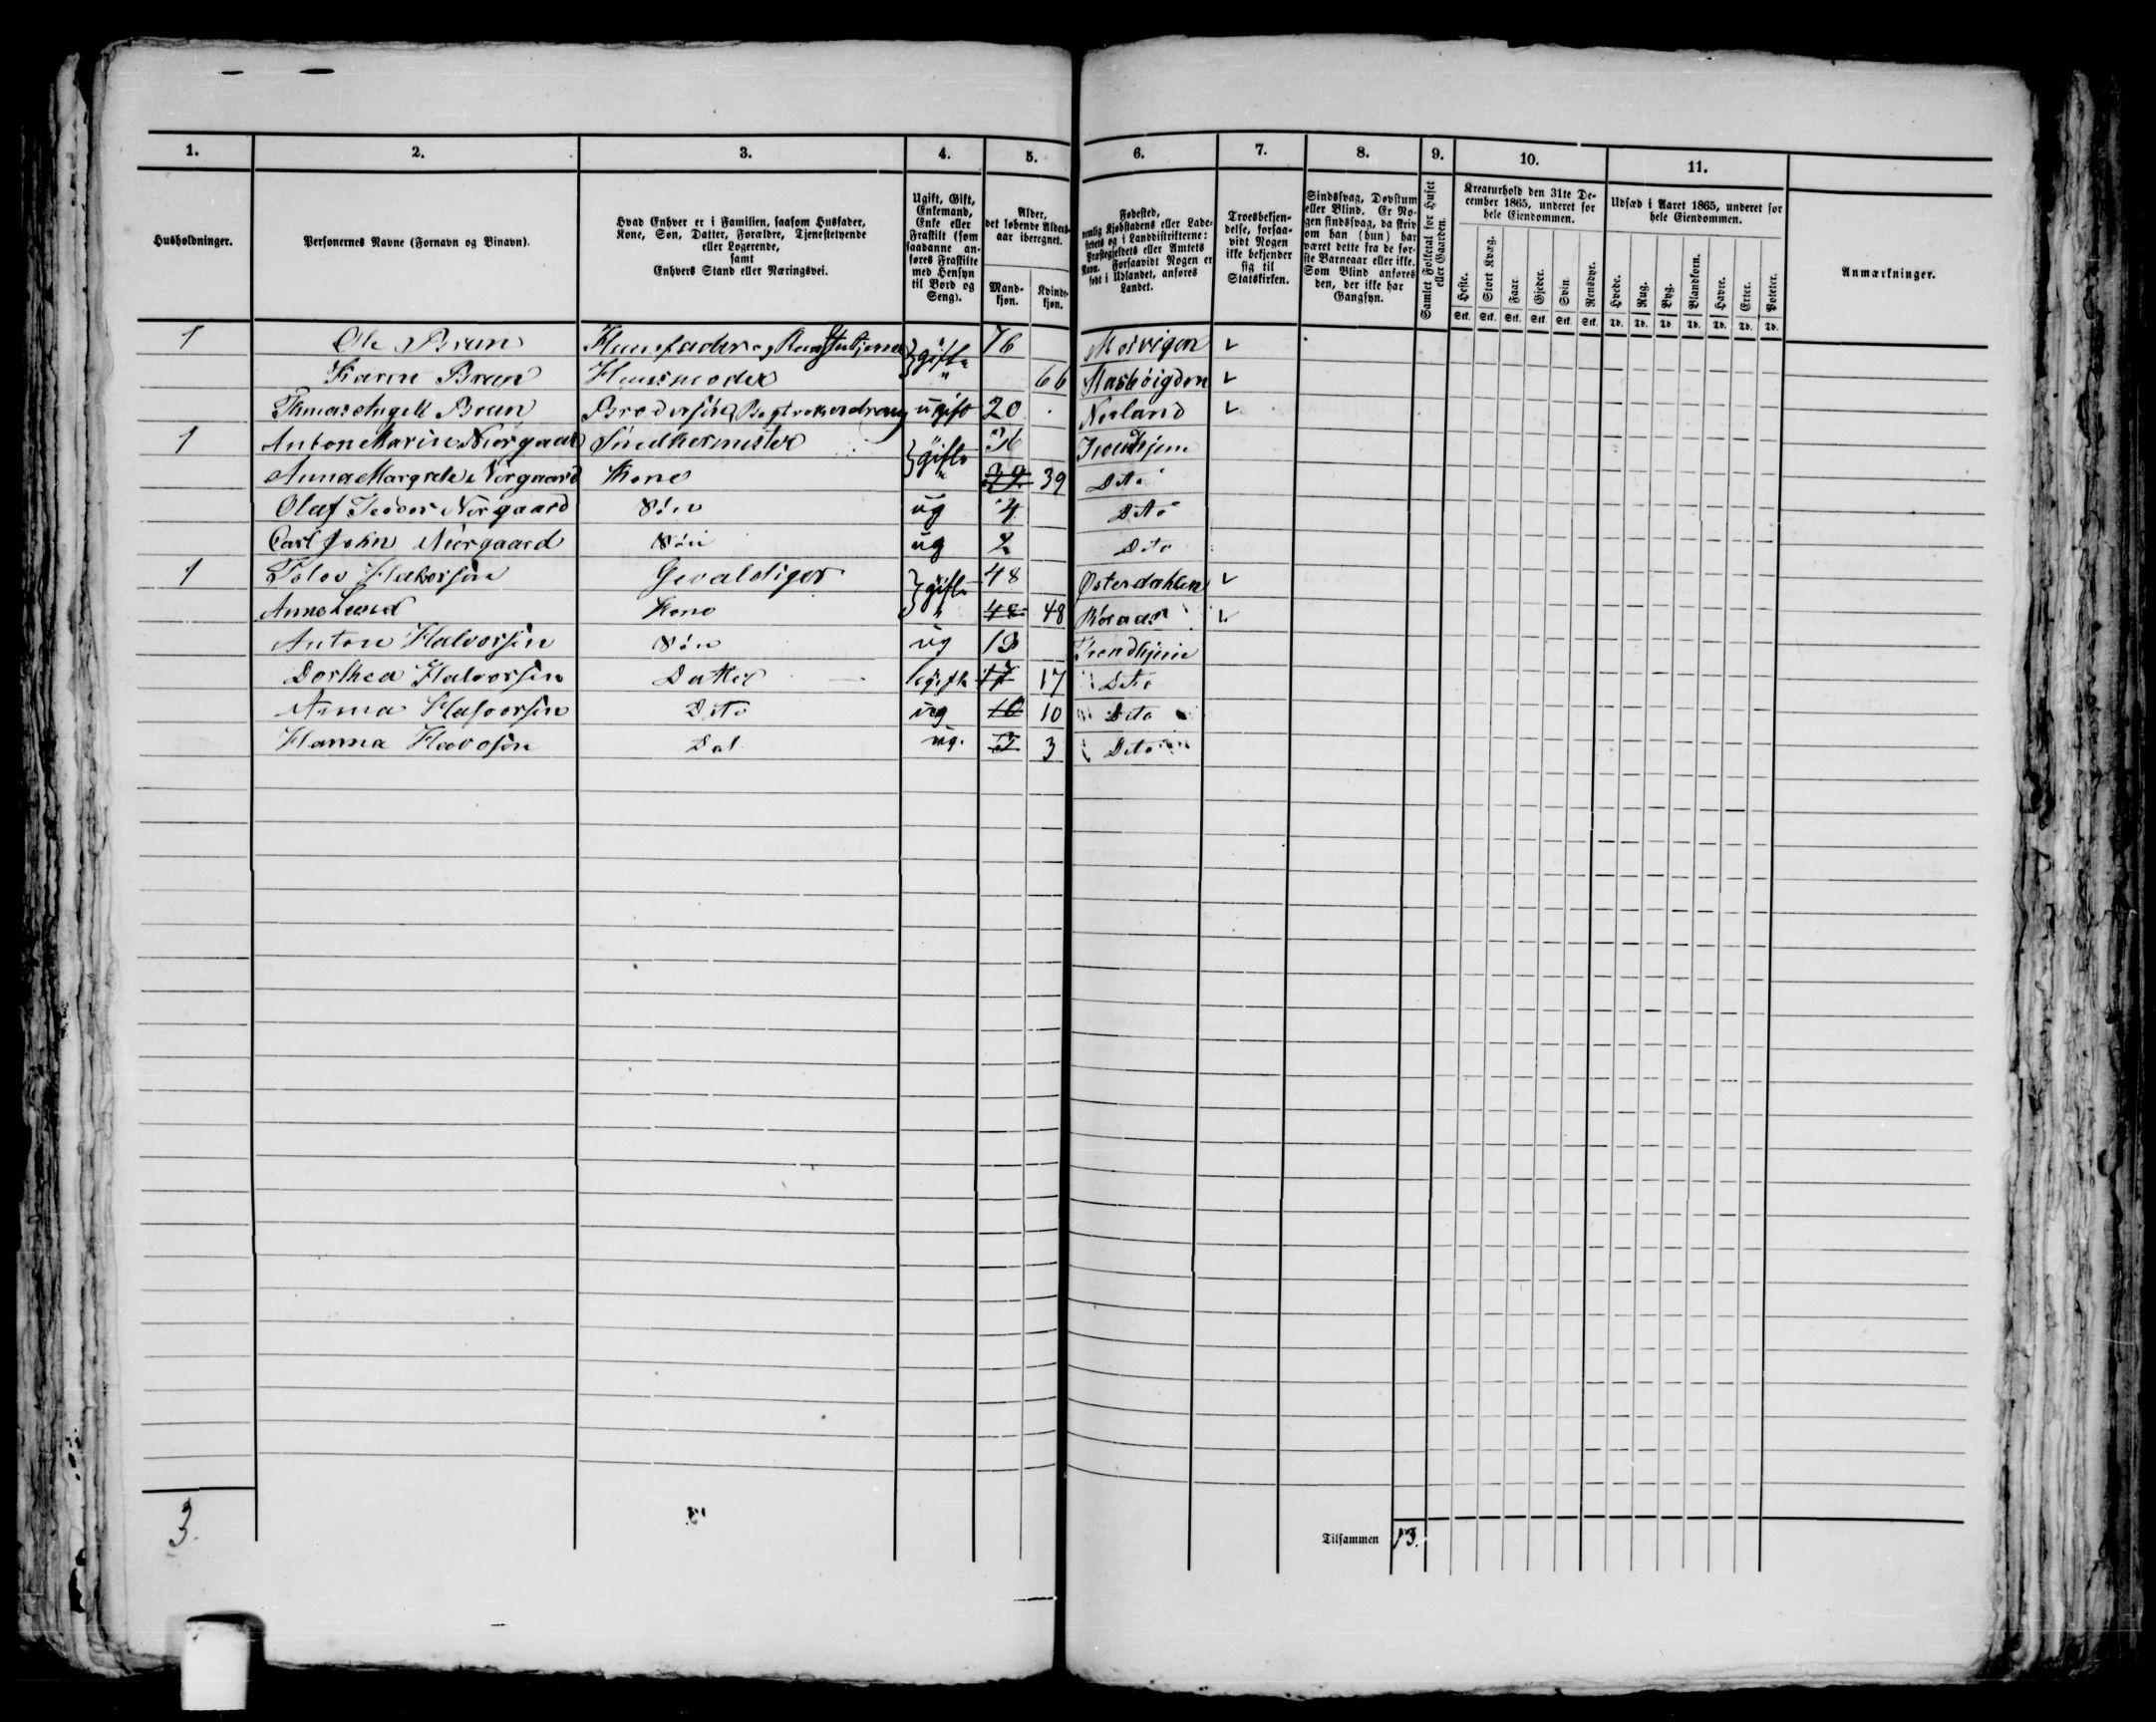 1. 2. 3. 4. 5. 6. 7. 8. 9. 10. 11.
Husholdninger.
Personernes Navne (Fornavn og Binavn).
Hvad Enhver er i Familien, saasom Husfader,
Kone, Søn, Datter, Forældre, Tjenestetyende
eller Logerende,
samt
Enhvers Stand eller Næringsvei.
Ugift, Gift,
Enkemand,
Enke eller
Fraskilt (som
saadanne an-
føres Fraskilte
med Hensyn
til Bord og
Seng).
Alder,
det løbende Alders-
aar iberegnet.
Mand-
kjøn.
Kvinde-
kjøn.
Fødested,
nemlig Kjøbstadens eller Lade-
stedets og i Landdistrikterne:
Præstegjeldets eller Amtets
Navn. Forsaavidt Nogen er
født i Udlandet, anføres
Landet.
Troesbekjen-
delse, forsaa-
vidt Nogen
ikke bekjender
sig til
Statskirken.
Sindssvag, Døvstum
eller Blind. Er No-
gen sindssvag, da skriv
om han (hun) har
været dette fra de før-
ste Barneaar eller ikke.
Som Blind anføres
den, der ikke har
Gangsyn.
Samlet Folketal for Huset
eller Gaarden.
Kreaturhold den 31te De-
cember 1865, underet for
hele Eiendommen.
Heste. Stort Kvæg. Faar. Gjeder. Svin. Rensdyr.
Stk. Stk. Stk. Stk. Stk. Stk.
Udsæd i Aaret 1865, underet for
hele Eiendommen.
Hvede. Rug. Byg. Blandkorn. Havre. Erter. Poteter.
Td. Td. Td. Td. Td. Td. Td.
Anmærkninger.
1 Ole Brun Huusfader og gifte 76
Karen Brun Huusmoder 66
Thomas Angell Brun Brodersøn ugift 20 Norland
1 Anton Marin Nørgaard Snedkermester gifte 36 Trondhjem
Anna Margrete Nørgaard Kone 39 39 Dito
Olaf Teodor Nørgaard Søn ug 4 Dito
Carl John Nørgaard Søn ug 2 Dito
1 Halvorsen Gevaldiger gifte 48 Østerdahlen
Anne Kone 48 48 Røraas
Anton Halvorsen Søn ug 13 Trondhjem
Dorthea Halvorsen Datter ugifte 17 17 Dito
Anna Halvorsen Dito ug 10 10 Dito
Hanna Dat ug. 3 3 Dito
3.
Tilsammen 13.